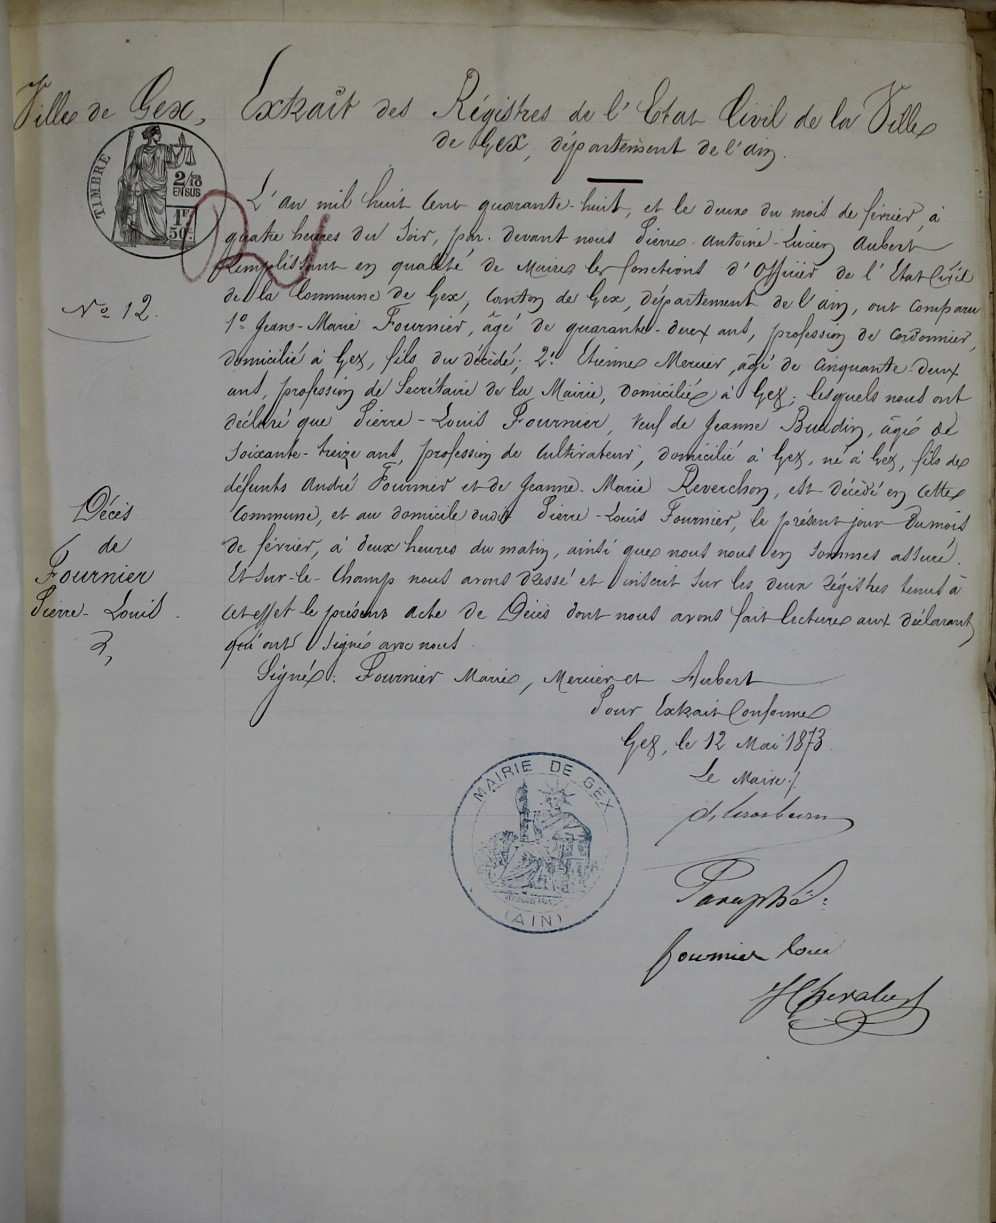 Ville de Gex,
Extrait des Régistres de l'Etat Civil de la Ville
de Gex, département de l'ain.
TIMBRE
2/10
EN SUS
1F
50c
No 12.
L'an mil huit Cent quarante-huit, et le deux du mois de février, à
quatre heures du soir, par devant nous Pierre-Antoine-Lucien Aubert
Remplissant en qualité de Maire les fonctions d'Officier de l'Etat Civil
de la Commune de Gex, Canton de Gex, département de l'ain, ont comparu
1o Jean-Marie Fournier, âgé de quarante-deux ans, profession de Cordonnier,
domicilié à Gex, fils du décédé; 2o Etienne Mercier, âgé de Cinquante-deux
ans, profession de Secrétaire de la Mairie, domicilié à Gex; lesquels nous ont
déclaré que Pierre-Louis Fournier, veuf de Jeanne Baudin, âgé de
soixante-treize ans, profession de Cultivateur, domicilié à Gex, né à Gex, fils de
défunts André Fournier et de Jeanne-Marie Reverchon, est décédé en Cette
Commune, et au domicile dudit Pierre-Louis Fournier, le présent jour du mois
de février, à deux heures du matin, ainsi que nous nous en sommes assuré.
Et sur-le-Champ nous avons dressé et inscrit sur les deux régistres tenus à
cet effet le présent acte de Décès dont nous avons fait lecture aux déclarants
qui ont signé avec nous.
Décès
de
Fournier
Pierre-Louis.
Signé: Fournier Marie, Mercier et Aubert
Pour Extrait Conforme
Gex, le 12 Mai 1873.
Le Maire,
MAIRIE DE GEX
(AIN)
Paraphé:
fournier Louis